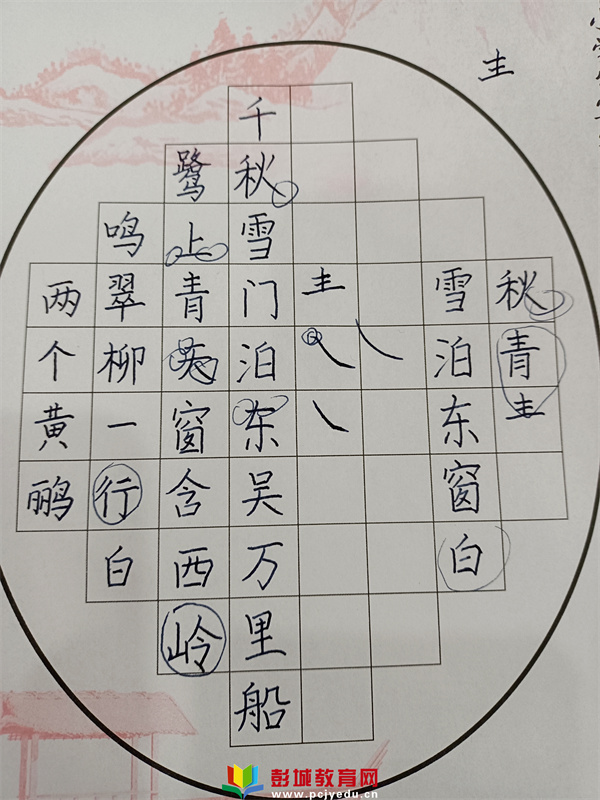 龶
两个黄鹂
鸣翠柳一行白
鹭上青天窗含西岭
千秋雪门泊东吴万里船
龶
雪泊东窗白
秋青龶
彭城教育网
www.pcjyedu.cn